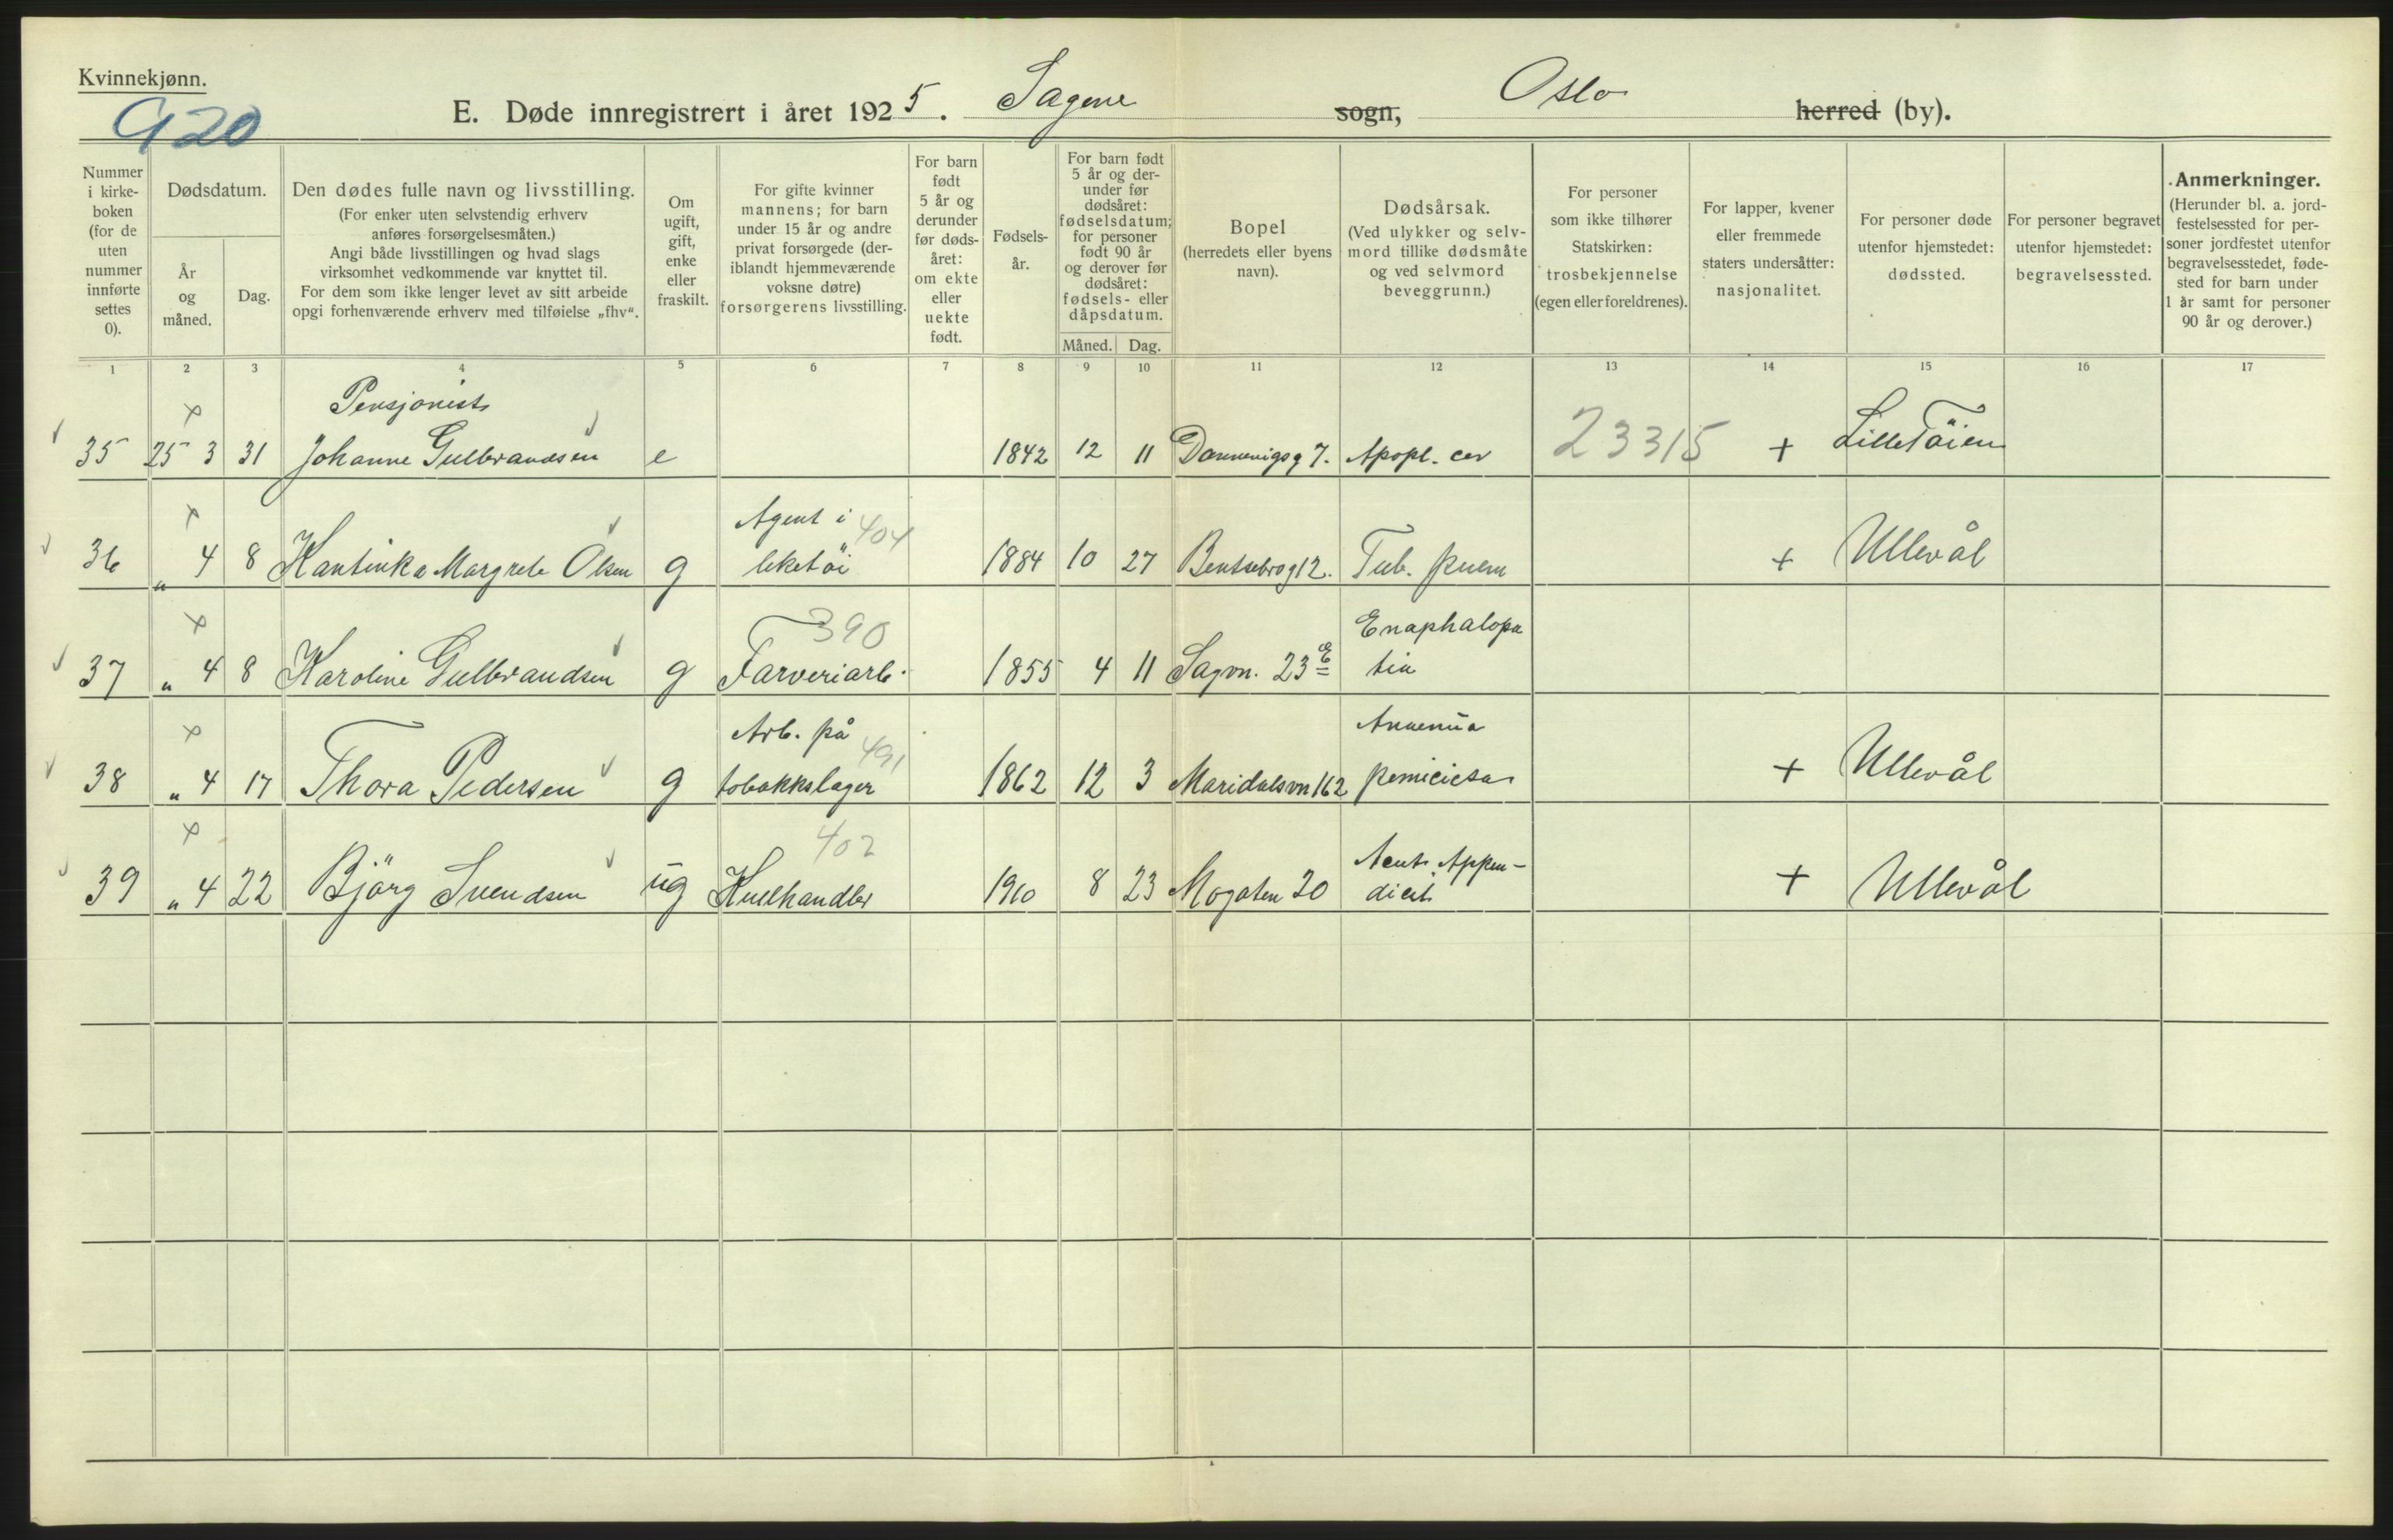 Kvinnekjønn.
920
E. Døde innregistrert i året 1925. Sagene sogn, Oslo herred (by).
Nummer i kirke-boken (for de uten nummer innførte settes 0).
Dødsdatum.
År og måned.
Dag.
Den dødes fulle navn og livsstilling.
(For enker uten selvstendig erhverv
anføres forsørgelsesmåten.)
Angi både livsstillingen og hvad slags
virksomhet vedkommende var knyttet til.
For dem som ikke lenger levet av sitt arbeide
opgi forhenværende erhverv med tilføielse „fhv“.
Om ugift, gift, enke eller fraskilt.
For gifte kvinner
mannens; for barn
under 15 år og andre
privat forsørgede (der-
iblandt hjemmeværende
voksne døtre)
forsørgerens livsstilling.
For barn født 5 år og derunder før døds-året: om ekte eller uekte født.
Fødsels-år.
For barn født
5 år og der-
under før
dødsåret:
fødselsdatum;
for personer
født 90 år
og derover før
dødsåret:
fødsels- eller
dåpsdatum.
Måned. Dag.
Bopel
(herredets eller byens
navn).
Dødsårsak.
(Ved ulykker og selv-
mord tillike dødsmåte
og ved selvmord
beveggrunn.)
For personer
som ikke tilhører
Statskirken:
trosbekjennelse
(egen eller foreldrenes).
For lapper, kvener
eller fremmede
staters undersåtter:
nasjonalitet.
For personer døde
utenfor hjemstedet:
dødssted.
For personer begravet
utenfor hjemstedet:
begravelsessted.
Anmerkninger.
(Herunder bl. a. jord-
festelsessted for per-
soner jordfestet utenfor
begravelsesstedet, føde-
sted for barn under
1 år samt for personer
90 år og derover.)
1 2 3 4 5 6 7 8 9 10 11 12 13 14 15 16 17
Pensjonist
35 25 3 31 Johanne Gulbrandsen e 1842 12 11 Dannevigsg 7. Apopl. cer 23315 + Lille Töien
Agent i 404
36 „ 4 8 Kantinka Margrete Olsen g leketöi 1884 10 27 Bentsebrog 12. Tub. pulm + Ullevål
390 Enaphalopa
37 „ 4 8 Karoline Gulbrandsen g Farveriarb. 1855 4 11 Sagvn. 23 E tia
Arb. på 491 Anaemia
38 „ 4 17 Thora Pedersen g tobakkslager 1862 12 3 Maridalsvn 162 perniciosa + Ullevål
402 Acut. Appen-
39 „ 4 22 Bjørg Svendsen ug Kulhandler 1910 8 23 Mogaten 20 dicit + Ullevål